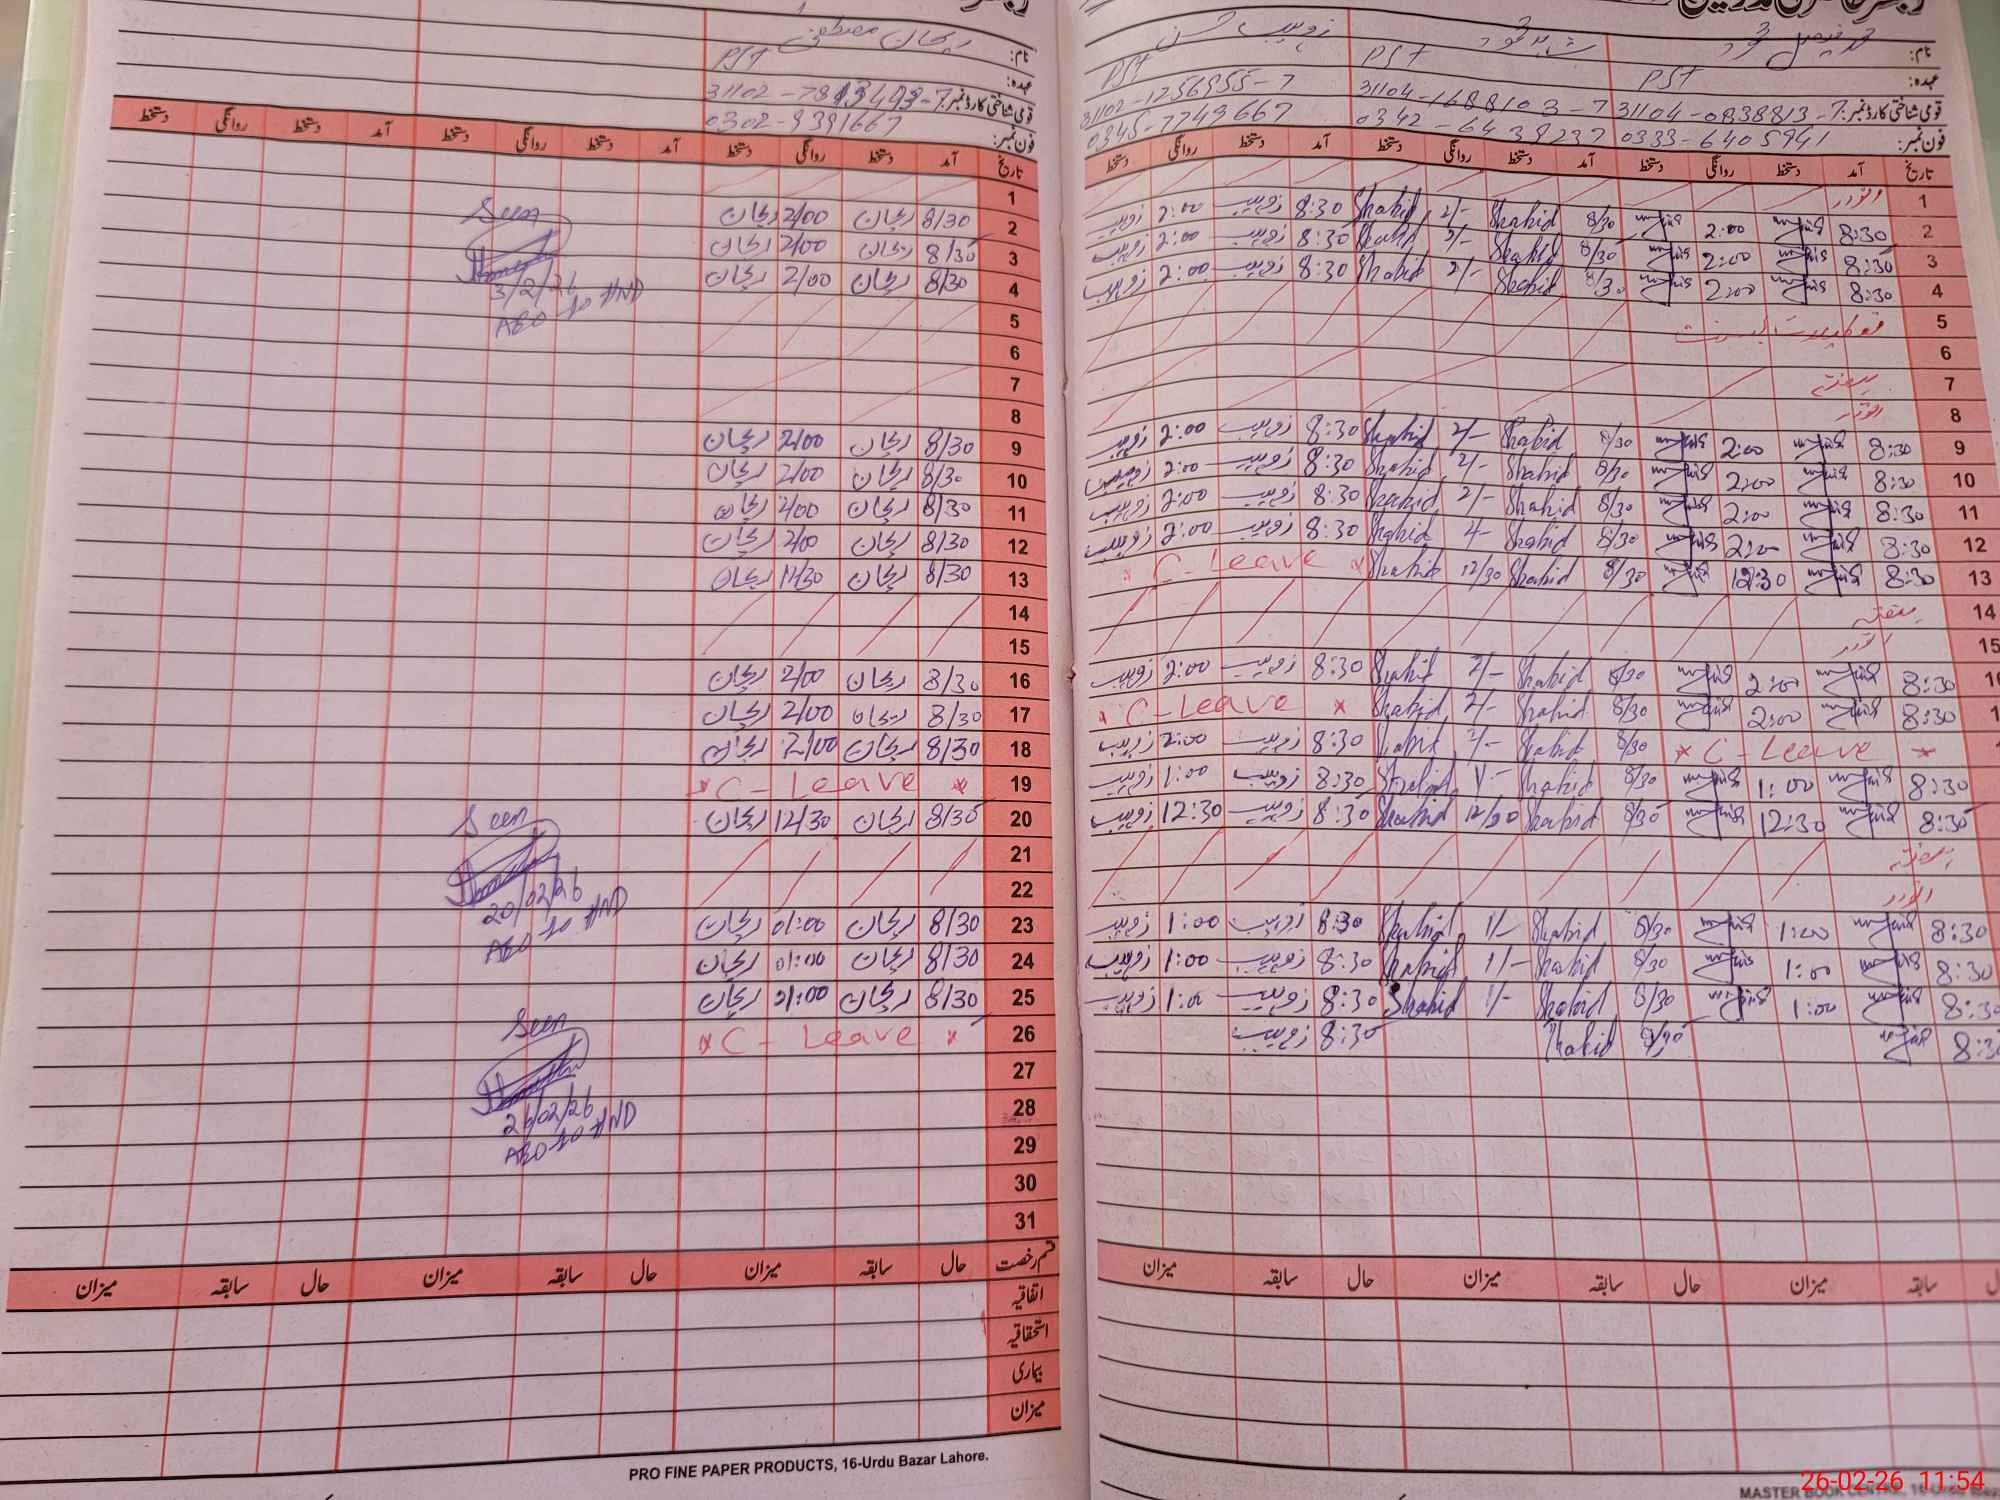 نام: ریحان مصطفیٰ
عہدہ: PST
قومی شناختی کارڈ نمبر: 31102-7813493-7
فون نمبر: 0302-9391667
تاریخ آمد دستخط روانگی دستخط آمد دستخط روانگی دستخط آمد دستخط روانگی دستخط
1
2 8/30 ریحان 2/00 ریحان
3 8/30 ریحان 2/00 ریحان
4 8/30 ریحان 2/00 ریحان
5
6
7
8
9 8/30 ریحان 2/00 ریحان
10 8/30 ریحان 2/00 ریحان
11 8/30 ریحان 2/00 ریحان
12 8/30 ریحان 2/00 ریحان
13 8/30 ریحان 11/30 ریحان
14
15
16 8/30 ریحان 2/00 ریحان
17 8/30 ریحان 2/00 ریحان
18 8/30 ریحان 2/00 ریحان
19 * C - Leave *
20 8/30 ریحان 12/30 ریحان
21
22
23 8/30 ریحان 01:00 ریحان
24 8/30 ریحان 01:00 ریحان
25 8/30 ریحان 01:00 ریحان
26 * C - Leave *
27
28
29
30
31
Seen
3/2/26
AEO HND
Seen
20/02/26
AEO HND
Seen
26/02/26
AEO HND
قسم رخصت حال سابقہ میزان حال سابقہ میزان حال سابقہ میزان
اتفاقیہ
استحقاقیہ
بیماری
میزان
PRO FINE PAPER PRODUCTS, 16-Urdu Bazar Lahore.
نام: محمد فیصل زوہیب حسن
عہدہ: PST PST PST
قومی شناختی کارڈ نمبر: 31104-0838813-7 31104-1688103-7 31102-1256955-7
فون نمبر: 0333-6405941 0342-6439237 0345-7749667
تاریخ آمد دستخط روانگی دستخط آمد دستخط روانگی دستخط آمد دستخط روانگی دستخط
1 اتوار
2 8:30 2:00 8/30 Shahid 2/- Shahid 8:30 زوہیب 2:00 زوہیب
3 8:30 2:00 8/30 Shahid 2/- Shahid 8:30 زوہیب 2:00 زوہیب
4 8:30 2:00 8/30 Shahid 2/- Shahid 8:30 زوہیب 2:00 زوہیب
5
6
7 ہفتہ
8 اتوار
9 8:30 2:00 8/30 Shahid 2/- Shahid 8:30 زوہیب 2:00 زوہیب
10 8:30 2:00 8/30 Shahid 2/- Shahid 8:30 زوہیب 2:00 زوہیب
11 8:30 2:00 8/30 Shahid 2/- Shahid 8:30 زوہیب 2:00 زوہیب
12 8:30 2:00 8/30 Shahid 2/- Shahid 8:30 زوہیب 2:00 زوہیب
13 8:30 12:30 8/30 Shahid 12/30 Shahid * C - Leave *
14 ہفتہ
15 اتوار
8:30 2:00 8/30 Shahid 2/- Shahid 8:30 زوہیب 2:00 زوہیب
8:30 2:00 8/30 Shahid 2/- Shahid * C - Leave *
* C - Leave * 8/30 Shahid 2/- Shahid 8:30 زوہیب 2:00 زوہیب
8:30 1:00 8/30 Shahid 1/- Shahid 8:30 زوہیب 1:00 زوہیب
8:30 12:30 8/30 Shahid 12/30 Shahid 8:30 زوہیب 12:30 زوہیب
ہفتہ
اتوار
8:30 1:00 8/30 Shahid 1/- Shahid 8:30 زوہیب 1:00 زوہیب
8:30 1:00 8/30 Shahid 1/- Shahid 8:30 زوہیب 1:00 زوہیب
8:30 1:00 8/30 Shahid 1/- Shahid 8:30 زوہیب 1:00 زوہیب
8:30 8/30 Shahid 8:30 زوہیب
سابقہ میزان حال سابقہ میزان حال سابقہ میزان
26-02-26 11:54
MASTER BOOK